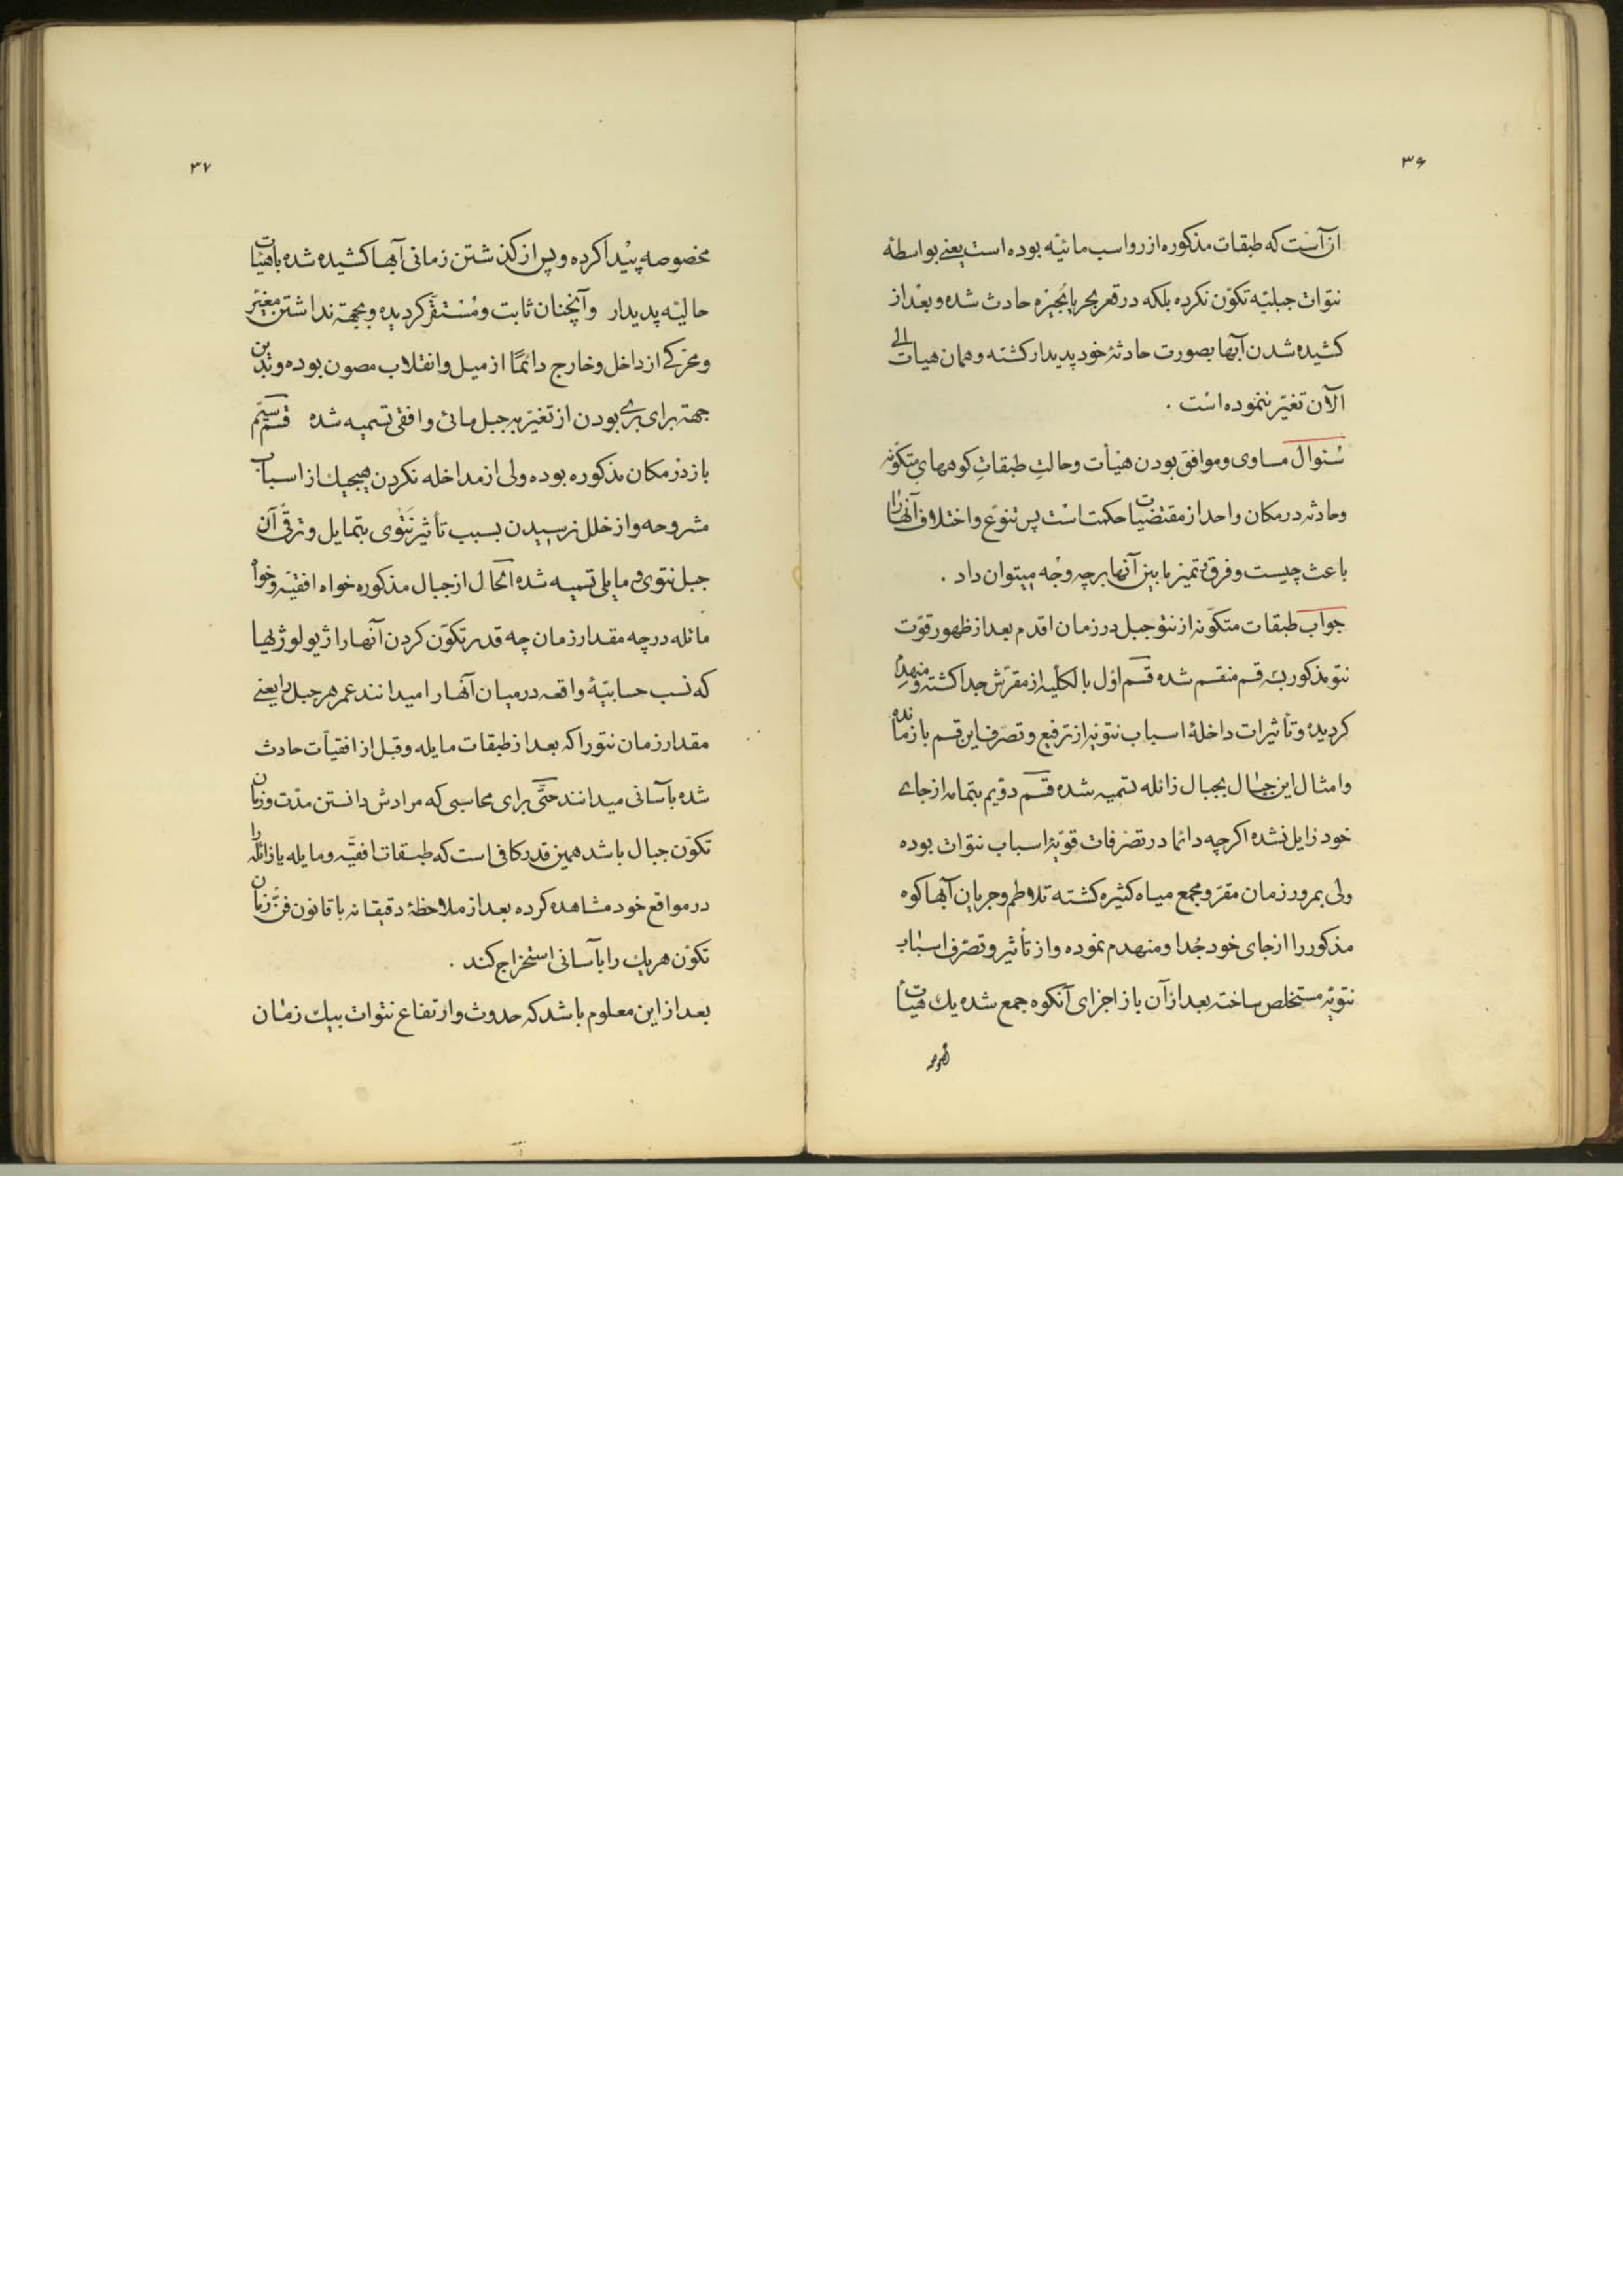 ۳۶
از آنست که طبقات مذکوره از رواسب مائیّه بوده است یعنے بواسطهٔ
نتوّات جبلیّه تکوّن نکرده بلکه در قعر بحر یا بُحیْره حادث شده و بعْد از
کشیده شدن آبها بصورت حادثهٔ خود پدیدار کشته و همان هیات الے
الآن تغیّر ننموده است .
سُئوال مساوی و موافق بودن هیْأت و حالتِ طبقاتِ کوههایِ متکوّنه
و حادثه در مکان واحد از مقتضیات حکمت است پس تنوّع و اختلاف آنها را
باعث چیست و فرق و تمیز ما بین آنها بر چه وجْه میتوان داد .
جواب طبقات متکوّنه از نتوّ جبل در زمان اقدم بعد از ظهور قوّت
نتوّ مذکور بسه قسم منقسم شده قسم اوّل بالکلّیه از مقرّش جدا کشته و منهدم
کردیده و تأثیرات داخلهٔ اسباب نتوّیه از ترفیع و تصرّف این قسم باز مانده
و امثال این جبال بجبال زائله تسمیه شده قسم دوّیم بتمامه از جاے
خود زایل نشده اکرچه دائما در تصرّفات قویّهٔ اسباب نتوّات بوده
ولی بمرور زمان مقرّ و مجمع میاه کثیره کشته تلاطم و جریان آبها کوه
مذکور را از جای خود جُدا و منهدم نموده و از تأثیر و تصرّف اسباب
نتوّیه مستخلص ساخته بعد از آن باز اجزای آنکوه جمع شده یك هیأت
۳۷
مخصوصه پیْدا کرده و پس از کذشتن زمانی آبها کشیده شده با هیأت
حالیّه پدیدار و آنچنان ثابت و مُسْتقرّ کردیده و بجهة نداشتن مغیّر
و محرّکے از داخل و خارج دائمًا از میل و انقلاب مصون بوده و بدین
جهة برای برے بودن از تغیّر بر جبل مائی و افقی تسمیه شده قسم سیّم
باز در مکان مذکوره بوده ولی از مداخله نکردن هیچیك از اسباب
مشروحه و از خلل نرسیدن بسبب تأثیر نَتوّی بتمایل و ترقّی آن
جبل نتوی و مایلی تسمیه شده الحال از جبال مذکوره خواه افقیّه و خواه
مائله در چه مقدار زمان چه قدر تکوّن کردن آنها را ژیولوژیها
که نسب حسابیّهٔ واقعه در میان آنها را میدانند عمر هر جبل را یعنے
مقدار زمان نتو را که بعد از طبقات مایله و قبل از افقیأت حادث
شده بآسانی میدانند حتّی برای محاسبی که مرادش دانستن مدّت و زمان
تکوّن جبال باشد همین قدر کافی است که طبقات افقیّه و مایله یا زائله را
در مواقع خود مشاهده کرده بعد از ملاحظهٔ دقیقانه با قانون فنّی زمان
تکوّن هر یك را بآسانی استخراج کند .
بعد از این معلوم باشد که حدوث و ارتفاع نتوّات بیك زمان